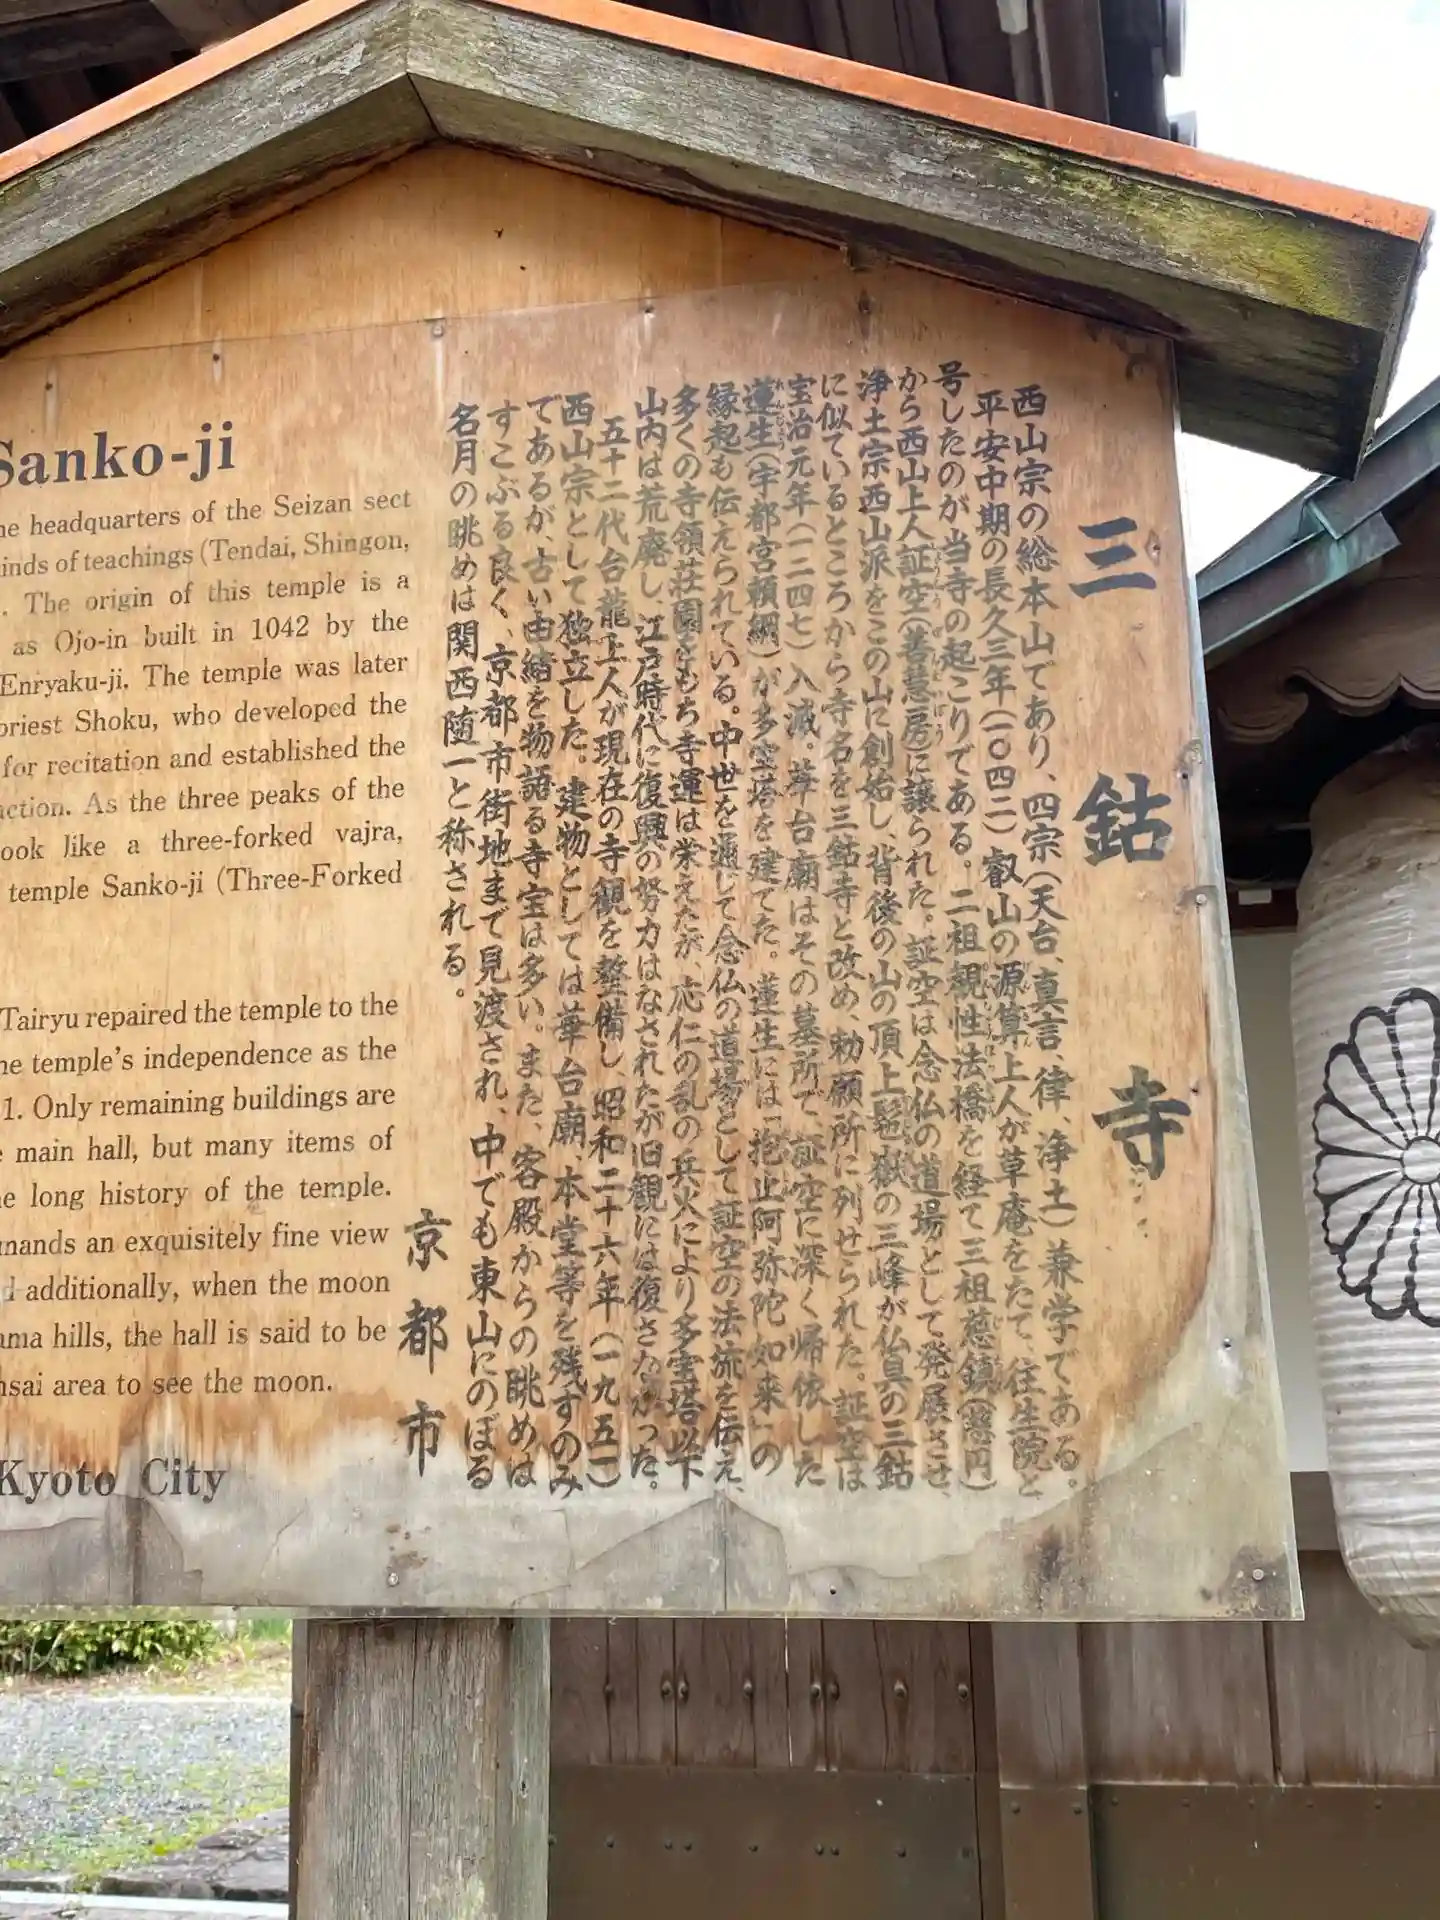 三鈷寺
西山宗の総本山であり、四宗(天台、真言、律、浄土)兼学である。
平安中期の長久三年(一〇四二)叡山の源算上人が草庵をたて、往生院と
号したのが当寺の起こりである。二祖観性法橋を経て三祖慈鎮(慈円)
から西山上人証空(善慧房)に譲られた。証空は念仏の道場として発展させ、
浄土宗西山派をこの山に創始し、背後の山の頂上
嶽の三峰が仏具の三鈷
に似ているところから寺名を三鈷寺と改め、勅願所に列せられた。証空は
宝治元年(一二四七)入滅。華台廟はその墓所で、証空に深く帰依した
蓮生(宇都宮頼綱)が多宝塔を建てた。蓮生には「抱止阿弥陀如来」の
縁起も伝えられている。中世を通じて念仏の道場として証空の法流を伝え、
多くの寺領荘園をもち寺運は栄えたが、応仁の乱の兵火により多宝塔以下
山内は荒廃し、江戸時代に復興の努力はなされたが旧観には復さなかった。
五十二代台龍上人が現在の寺観を整備し、昭和二十六年(一九五一)
西山宗として独立した。建物としては華台廟、本堂等を残すのみ
であるが、古い由緒を物語る寺宝は多い。また、客殿からの眺めは
すこぶる良く、京都市街地まで見渡され、中でも東山にのぼる
名月の眺めは関西随一と称される。
京都市
Sanko-ji
he headquarters of the Seizan sect
inds of teachings (Tendai, Shingon,
. The origin of this temple is a
as Ojo-in built in 1042 by the
Enryaku-ji. The temple was later
priest Shoku, who developed the
for recitation and established the
ction. As the three peaks of the
ook like a three-forked vajra,
temple Sanko-ji (Three-Forked
Tairyu repaired the temple to the
he temple's independence as the
1. Only remaining buildings are
e main hall, but many items of
he long history of the temple.
mands an exquisitely fine view
d additionally, when the moon
ama hills, the hall is said to be
nsai area to see the moon.
Kyoto City